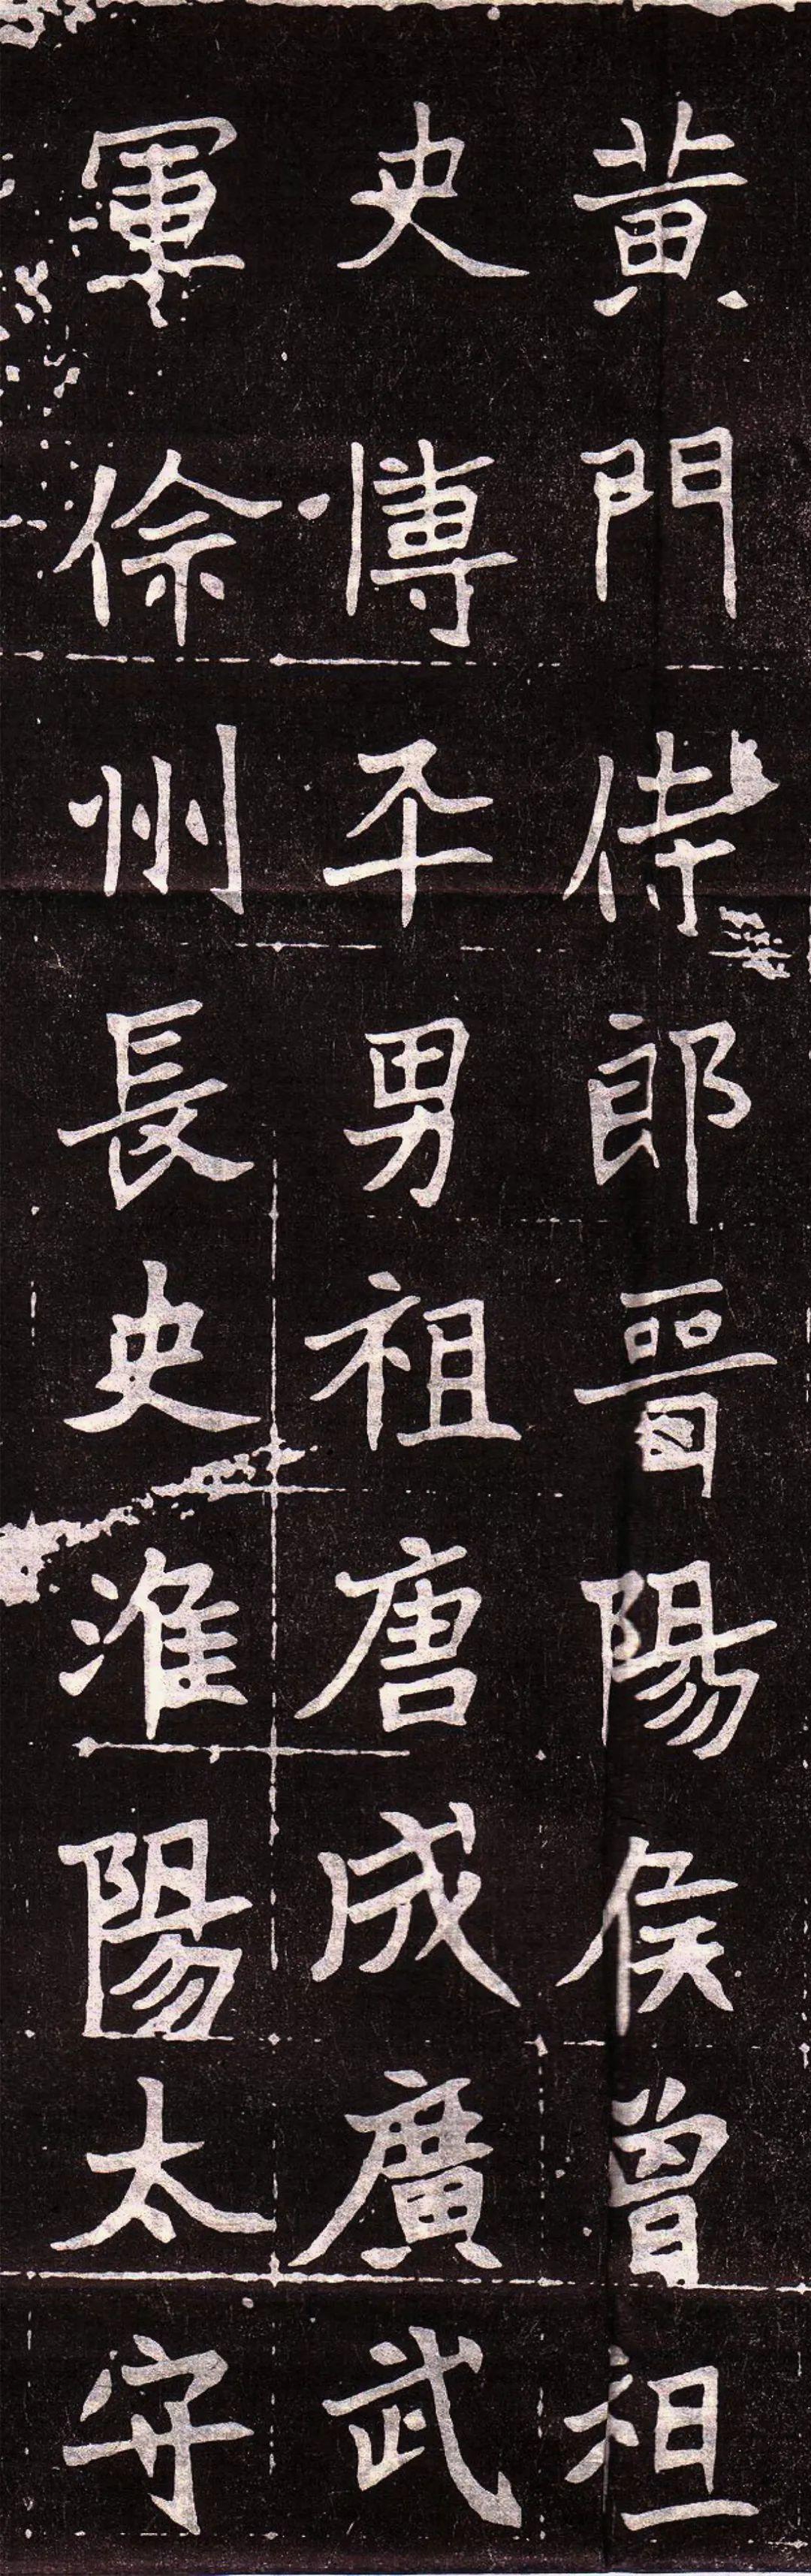 黃門侍郎晉陽侯曾祖
史博平男祖唐成廣武
軍徐州長史淮陽太守